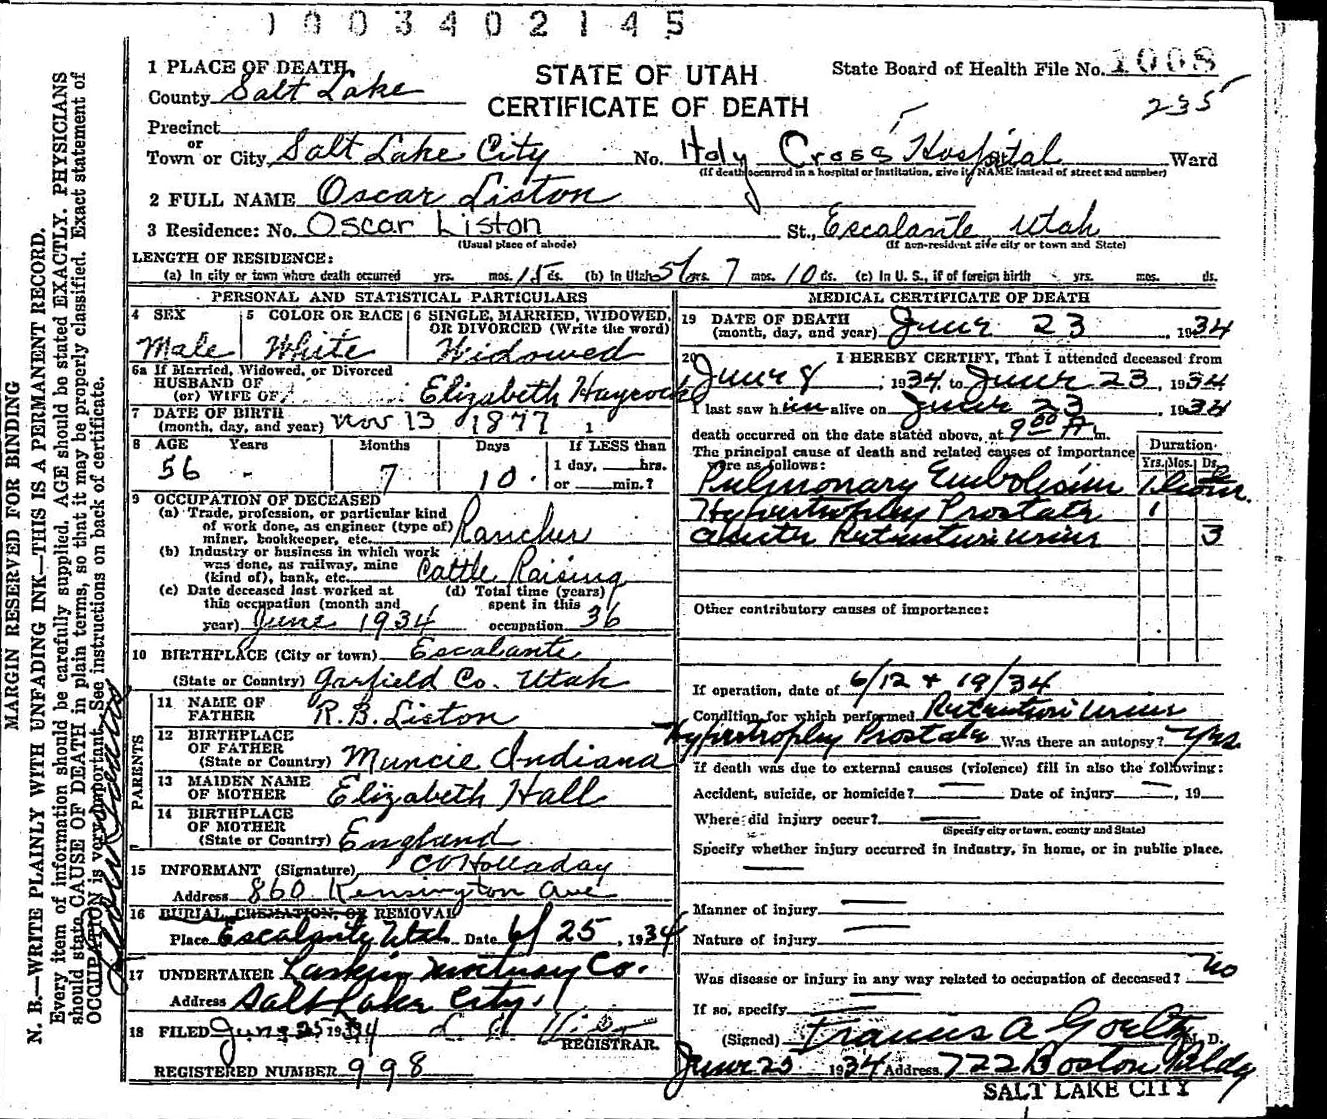 1003402145
1 PLACE OF DEATH
County Salt Lake
STATE OF UTAH
CERTIFICATE OF DEATH
State Board of Health File No. 1008
235
Precinct
or
Town or City Salt Lake City No. Holy Cross Hospital Ward
(If death occurred in a hospital or institution, give its NAME instead of street and number)
2 FULL NAME Oscar Liston
3 Residence: No. Oscar Liston St., Escalante Utah
(Usual place of abode) (If non-resident give city or town and State)
LENGTH OF RESIDENCE:
(a) In city or town where death occurred yrs. mos. 15 ds. (b) In Utah 56 yrs. 7 mos. 10 ds. (c) In U. S., if of foreign birth yrs. mos. ds.
PERSONAL AND STATISTICAL PARTICULARS
4 SEX 5 COLOR OR RACE 6 SINGLE, MARRIED, WIDOWED, OR DIVORCED (Write the word)
Male White Widowed
6a If Married, Widowed, or Divorced
HUSBAND OF
(or) WIFE OF Elizabeth Haycock
7 DATE OF BIRTH
(month, day, and year) Nov 13 1877
8 AGE Years Months Days If LESS than
1 day, hrs.
or min.?
56 - 7 10
9 OCCUPATION OF DECEASED
(a) Trade, profession, or particular kind
of work done, as engineer (type of)
miner, bookkeeper, etc. Rancher
(b) Industry or business in which work
was done, as railway, mine
(kind of), bank, etc. Cattle Raising
(c) Date deceased last worked at
this occupation (month and
year) June 1934
(d) Total time (years)
spent in this
occupation 36
10 BIRTHPLACE (City or town) Escalante
(State or Country) Garfield Co. Utah
PARENTS
11 NAME OF
FATHER R.B. Liston
12 BIRTHPLACE
OF FATHER
(State or Country) Muncie Indiana
13 MAIDEN NAME
OF MOTHER Elizabeth Hall
14 BIRTHPLACE
OF MOTHER
(State or Country) England
15 INFORMANT (Signature) C O Holladay
Address 860 Kensington Ave
16 BURIAL, CREMATION, OR REMOVAL
Place Escalante Utah Date 6/25, 1934
17 UNDERTAKER Larkin Mortuary Co.
Address Salt Lake City.
18 FILED June 25 1934
REGISTRAR.
REGISTERED NUMBER 998
MEDICAL CERTIFICATE OF DEATH
19 DATE OF DEATH
(month, day, and year) June 23, 1934
20 I HEREBY CERTIFY, That I attended deceased from
June 8, 1934 to June 23, 1934
I last saw him alive on June 23, 1934
death occurred on the date stated above, at 9 00 A m.
The principal cause of death and related causes of importance
were as follows:
Duration
Yrs. Mos. Ds.
Pulmonary Embolism 1 hour
Hypertrophy Prostate 1
Acute Retention urine 3
Other contributory causes of importance:
If operation, date of 6/12 + 19/34
Condition for which performed Retention urine
Hypertrophy Prostate Was there an autopsy? Yes.
If death was due to external causes (violence) fill in also the following:
Accident, suicide, or homicide? Date of injury , 19
Where did injury occur?
(Specify city or town, county and State)
Specify whether injury occurred in industry, in home, or in public place.
Manner of injury
Nature of injury
Was disease or injury in any way related to occupation of deceased? no
If so, specify
(Signed) Francis A Goeltz M. D.
June 25 1934 Address 722 Boston Bldg
SALT LAKE CITY
MARGIN RESERVED FOR BINDING
N. B.—WRITE PLAINLY WITH UNFADING INK—THIS IS A PERMANENT RECORD.
Every item of information should be carefully supplied. AGE should be stated EXACTLY. PHYSICIANS
should state CAUSE OF DEATH in plain terms, so that it may be properly classified. Exact statement of
OCCUPATION is very important. See instructions on back of certificate.